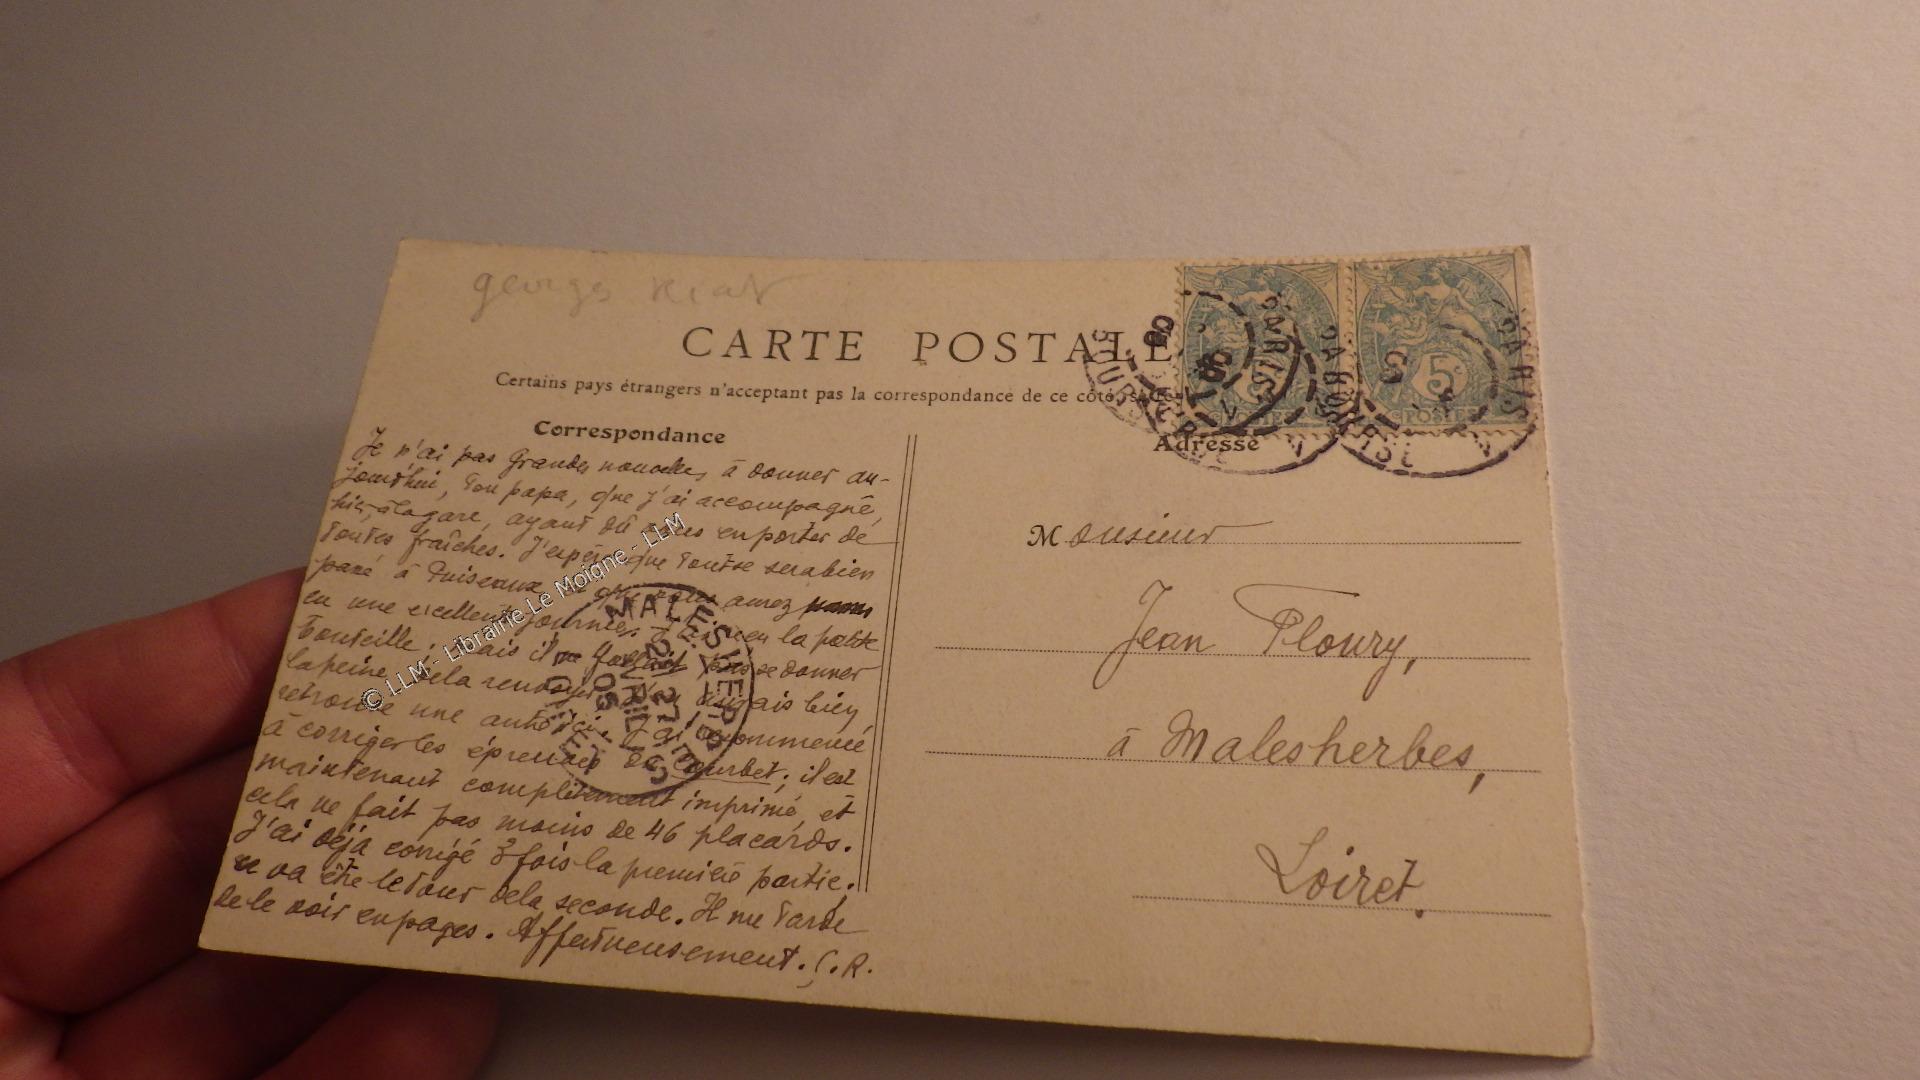 georges Riat
CARTE POSTALE
Certains pays étrangers n'acceptent pas la correspondance de ce côté
Correspondance
Je n'ai pas grandes nouvelles à donner au-
jourd'hui, ton papa, que j'ai accompagné,
hier, à la gare, ayant dû vous en porter de
toutes fraîches. J'espère que tout se sera bien
passé à Puiseaux, que vous aurez
eu une excellente journée. J'ai reçu la petite
bouteille; mais il ne fallait pas se donner
la peine de la renvoyer; j'en aurais bien
retrouvé une autre ici. J'ai recommencé
à corriger les épreuves du Courbet; il est
maintenant complètement imprimé, et
cela ne fait pas moins de 46 placards.
J'ai déjà corrigé 3 fois la première partie;
ce va être le tour de la seconde. Il me tarde
de le voir en pages. Affectueusement. G. R.
Adresse
Monsieur
Jean Ploury,
à Malesherbes,
Loiret.
PARIS
PARIS
5c
POSTES
MALESHERBES
27
AVRIL
05
LOIRET
© LLM - Librairie Le Moigne - LLM